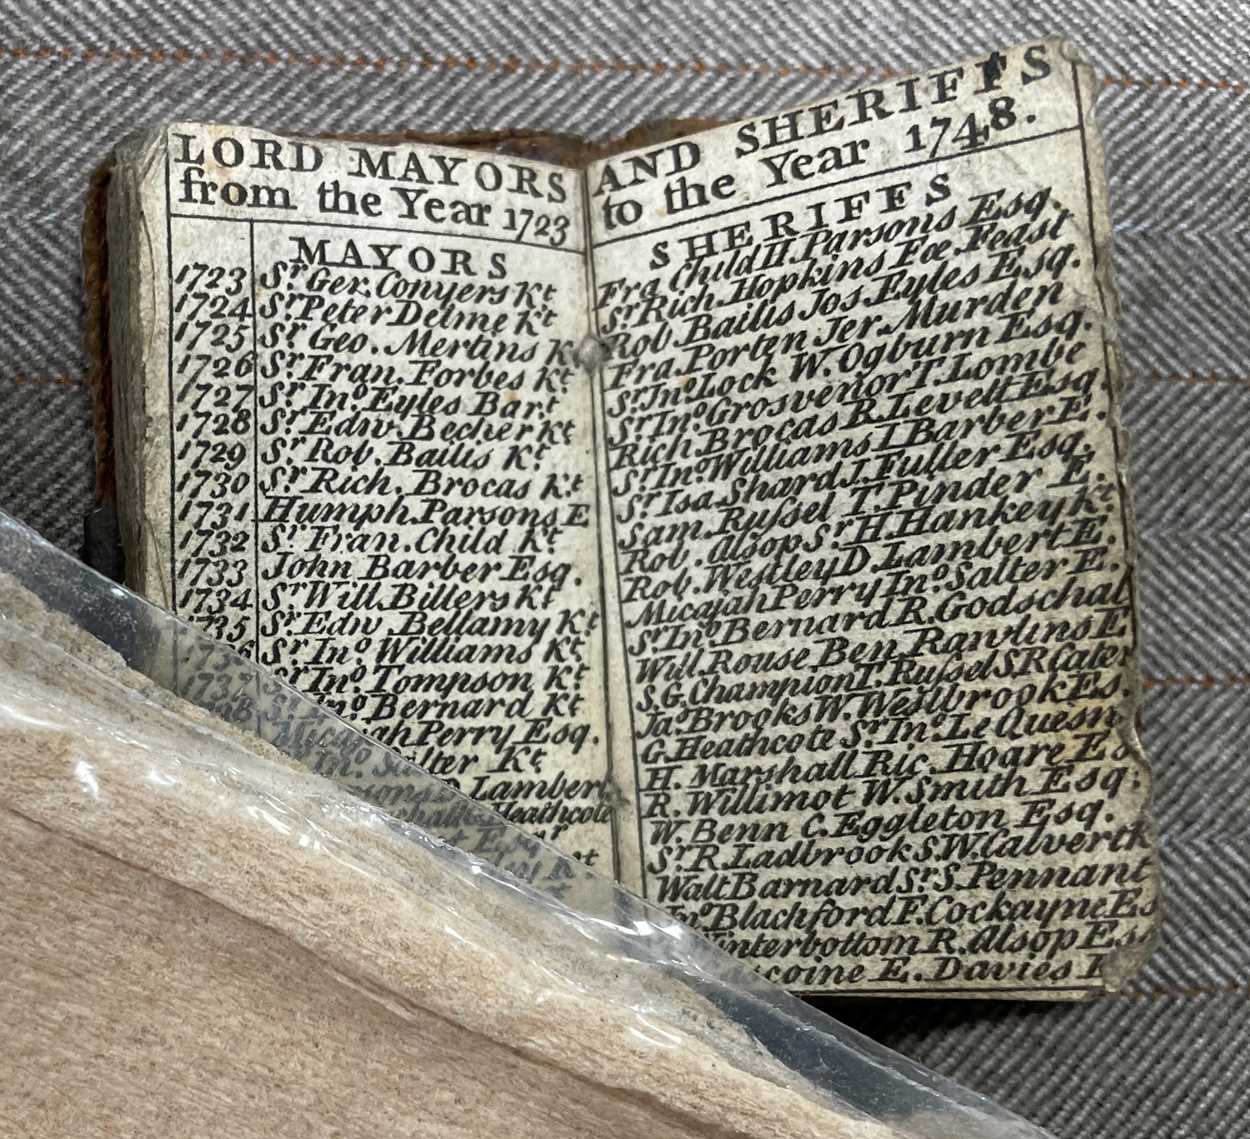 LORD MAYORS
from the Year 1723
MAYORS
1723 Sr. Ger. Conyers Kt
1724 Sr. Peter Delme Kt
1725 Sr. Geo. Mertins K
1726 Sr. Fran. Forbes Kt
1727 Sr. Ino. Eyles Bart.
1728 Sr. Edw. Becher Kt
1729 Sr. Rob. Bailis Kt.
1730 Sr. Rich. Brocas Kt
1731 Humph. Parsons E
1732 Sr. Fran. Child Kt.
1733 John Barber Esq.
1734 Sr. Will. Billers Kt
1735 Sr. Edw. Bellamy Kt
1736 Sr. Ino. Williams Kt.
1737 Sr. Ino. Tompson Kt
1738 Ino. Bernard Kt
Micajah Perry Esq.
Ino. Salter Kt
Parsons D. Lambert
Heathcote
AND SHERIFFS
to the Year 1748.
SHERIFFS
Fra Child H. Parsons Esq.
Sr. Rich. Hopkins Fœ. Feast
Rob. Bailis Jos. Eyles Esq.
Fra. Porten Jer. Murden
Sr. Ino. Lock W. Ogburn Esq.
Sr. Ino. Grosvenor T. Lombe
Rich. Brocas R. Levett Esq.
Sr. Ino. Williams I Barber E.
Sr. Isa Shard J. Fuller Esq.
Sam. Ruſsel T. Pinder E.
Rob. Alsop Sr. H. Hankey Kt.
Rob. Westley D. Lambert E.
Micajah Perry Ino. Salter E.
Sr. Ino. Bernard R. Godschal
Will Rouse Ben. Rawlins E
S. G. Champion T. Ruſsel S R Cater
Jao. Brooks W. Westbrook Es.
G. Heathcote Sr. Ino. Le Quesn
H. Marshall Ric. Hoare Es
R. Willimot W. Smith Esq:
W. Benn C. Eggleton Esq.
Sr. R. Ladbrook S. W. Calvert K
Walt Barnard Sr. S. Pennant
Ino. Blachford F. Cockayne Es
Winterbottom R. Alsop Es
scoine E. Davies E